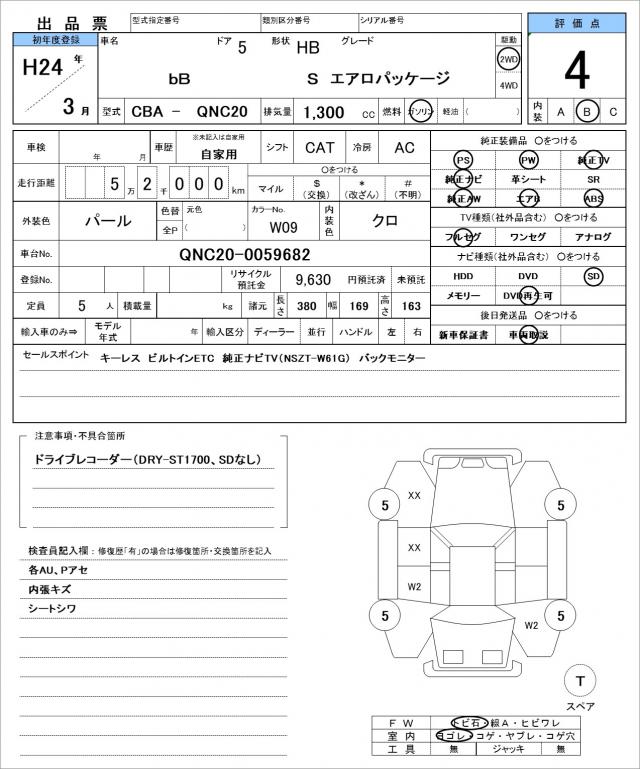 出品票 型式指定番号 類別区分番号 シリアル番号
評価点
初年度登録 車名 ドア 5 形状 HB グレード 駆動
H24 年 2WD
bB S エアロパッケージ 4WD 4
3 月 型式 CBA － QNC20 排気量 1,300 cc 燃料 ガソリン 軽油 ( ) 内装 A B C
車検 年 月 車歴 ※未記入は自家用 自家用 シフト CAT 冷房 AC
走行距離 5 万 2 千 0 0 0 km ○をつける マイル $ (交換) * (改ざん) # (不明)
外装色 パール 色替 全P 元色 ( ) カラーNo. W09 内装色 クロ
車台No. QNC20-0059682
登録No. リサイクル預託金 9,630 円預託済 未預託
定員 5 人 積載量 kg 諸元 長さ 380 幅 169 高さ 163
輸入車のみ⇒ モデル年式 年 輸入区分 ディーラー 並行 ハンドル 左 右
純正装備品 ○をつける
PS PW 純正TV
純正ナビ 革シート SR
純正AW エアB ABS
TV種類(社外品含む) ○をつける
フルセグ ワンセグ アナログ
ナビ種類(社外品含む) ○をつける
HDD DVD SD
メモリー DVD再生可
後日発送品 ○をつける
新車保証書 車両取説
セールスポイント キーレス ビルトインETC 純正ナビTV(NSZT-W61G) バックモニター
注意事項・不具合箇所
ドライブレコーダー(DRY-ST1700、SDなし)
検査員記入欄：修復歴「有」の場合は修復箇所・交換箇所を記入
各AU、Pアセ
内張キズ
シートシワ
XX
5 5
XX
W2
5 W2 5
T
スペア
FW トビ石・線A・ヒビワレ
室内 ヨゴレ・コゲ・ヤブレ・コゲ穴
工具 無 ジャッキ 無